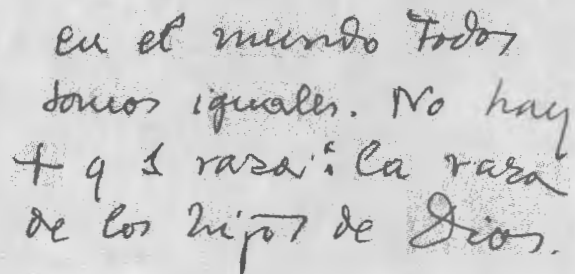 en el mundo Todos
somos iguales. No hay
+ q 1 raza: la raza
de los hijos de Dios.